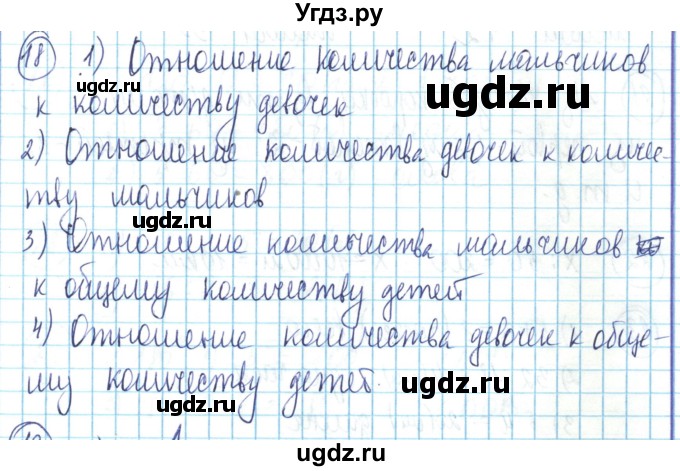 Угдз.ру
18 1) Отношение количества мальчиков
к количеству девочек
ugdz.ru
2) Отношение количества девочек к количес-
тву мальчиков
ugdz.ru
3) Отношение количества мальчиков
к общему количеству детей
4) Отношение количества девочек к обще-
му количеству детей.
ugdz.ru
ugdz.ru
ugdz.ru